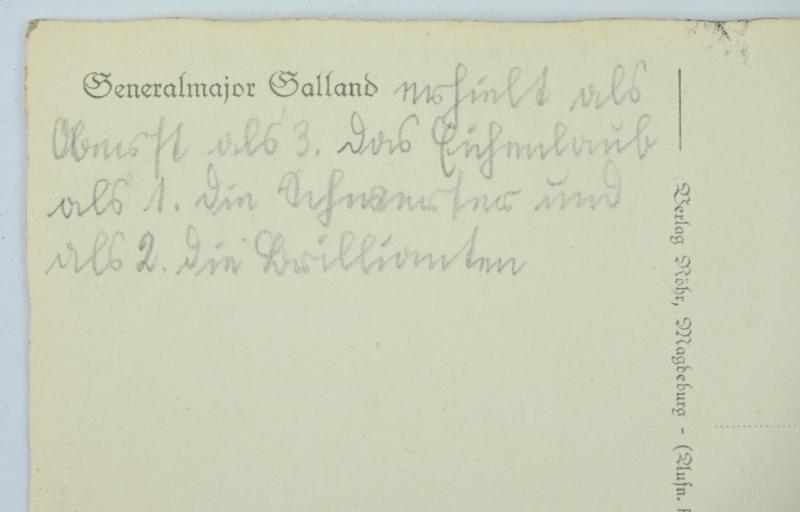 Generalmajor Galland erhielt als
Oberst als 3. das Eichenlaub
als 1. die Schwerter und
als 2. die Brillianten
Verlag Röhr, Magdeburg - (Aufn.